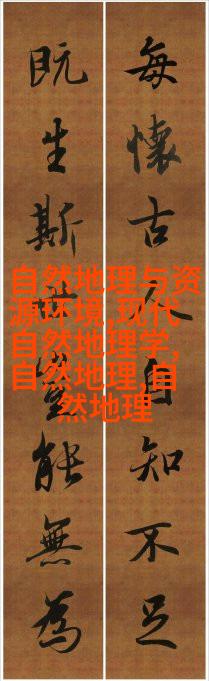 每懷古人自知不足
既生斯豈能無為
自然地理与资
源环境,现代
自然地理学,
自然地理,自
然地理